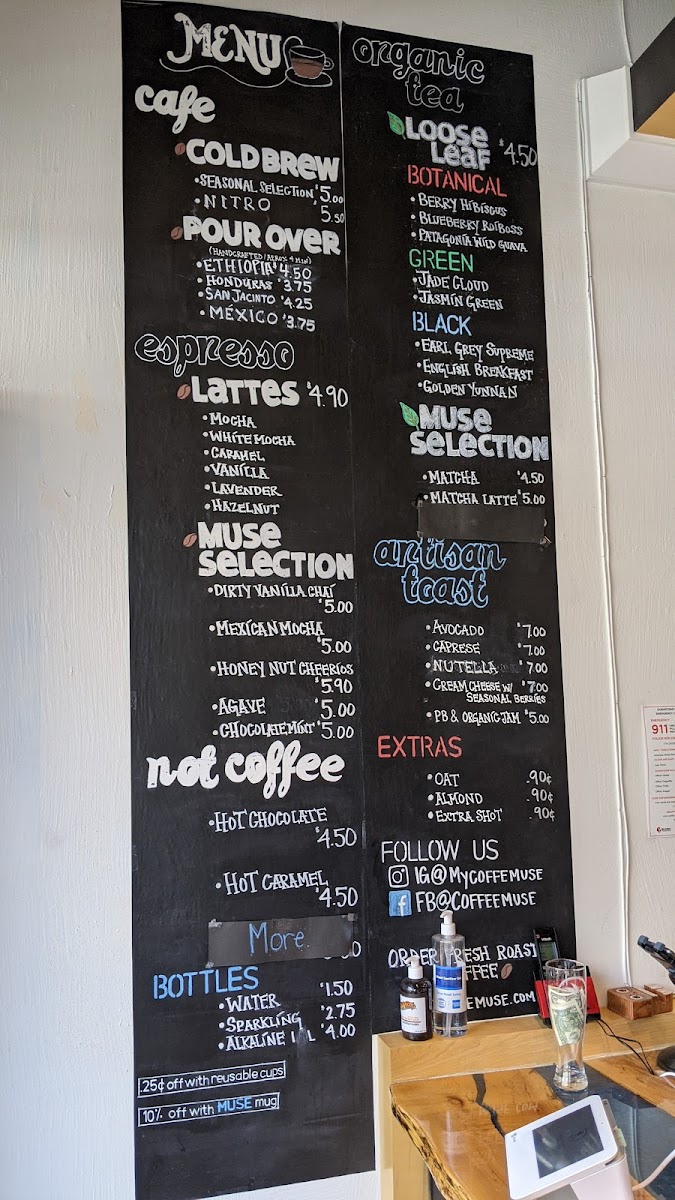 MENU
cafe
COLD BREW
• SEASONAL SELECTION, $5.00
• NITRO 5.50
POUR OVER
(HANDCRAFTED/APROX 4 MIN)
• ETHIOPIA $4.50
• HONDURAS $3.75
• SAN JACINTO $4.25
• MÉXICO $3.75
espresso
LATTES $4.90
• MOCHA
• WHITE MOCHA
• CARAMEL
• VANILLA
• LAVENDER
• HAZELNUT
MUSE
SELECTION
• DIRTY VANILLA CHAI
$5.00
• MEXICAN MOCHA
$5.00
• HONEY NUT CHEERIOS
$5.90
• AGAVE $5.00
• CHOCOLATE MINT $5.00
not coffee
• HOT CHOCOLATE
$4.50
• HOT CARAMEL
$4.50
More.
BOTTLES
• WATER $1.50
• SPARKLING $2.75
• ALKALINE $4.00
.25¢ off with reusable cups
10% off with MUSE mug
organic
tea
LOOSE
LEAF $4.50
BOTANICAL
• BERRY HIBISCUS
• BLUEBERRY ROIBOSS
• PATAGONIA WILD GUAVA
GREEN
• JADE CLOUD
• JASMIN GREEN
BLACK
• EARL GREY SUPREME
• ENGLISH BREAKFAST
• GOLDEN YUNNAN
MUSE
SELECTION
• MATCHA $4.50
• MATCHA LATTE $5.00
artisan
toast
• AVOCADO $7.00
• CAPRESE $7.00
• NUTELLA $7.00
• CREAM CHEESE W/ $7.00
SEASONAL BERRIES
• PB & ORGANIC JAM $5.00
EXTRAS
• OAT .90¢
• ALMOND .90¢
• EXTRA SHOT .90¢
FOLLOW US
IG@MYCOFFEMUSE
FB@COFFEEMUSE
ORDER FRESH ROAST
COFFEE
EMUSE.COM
911